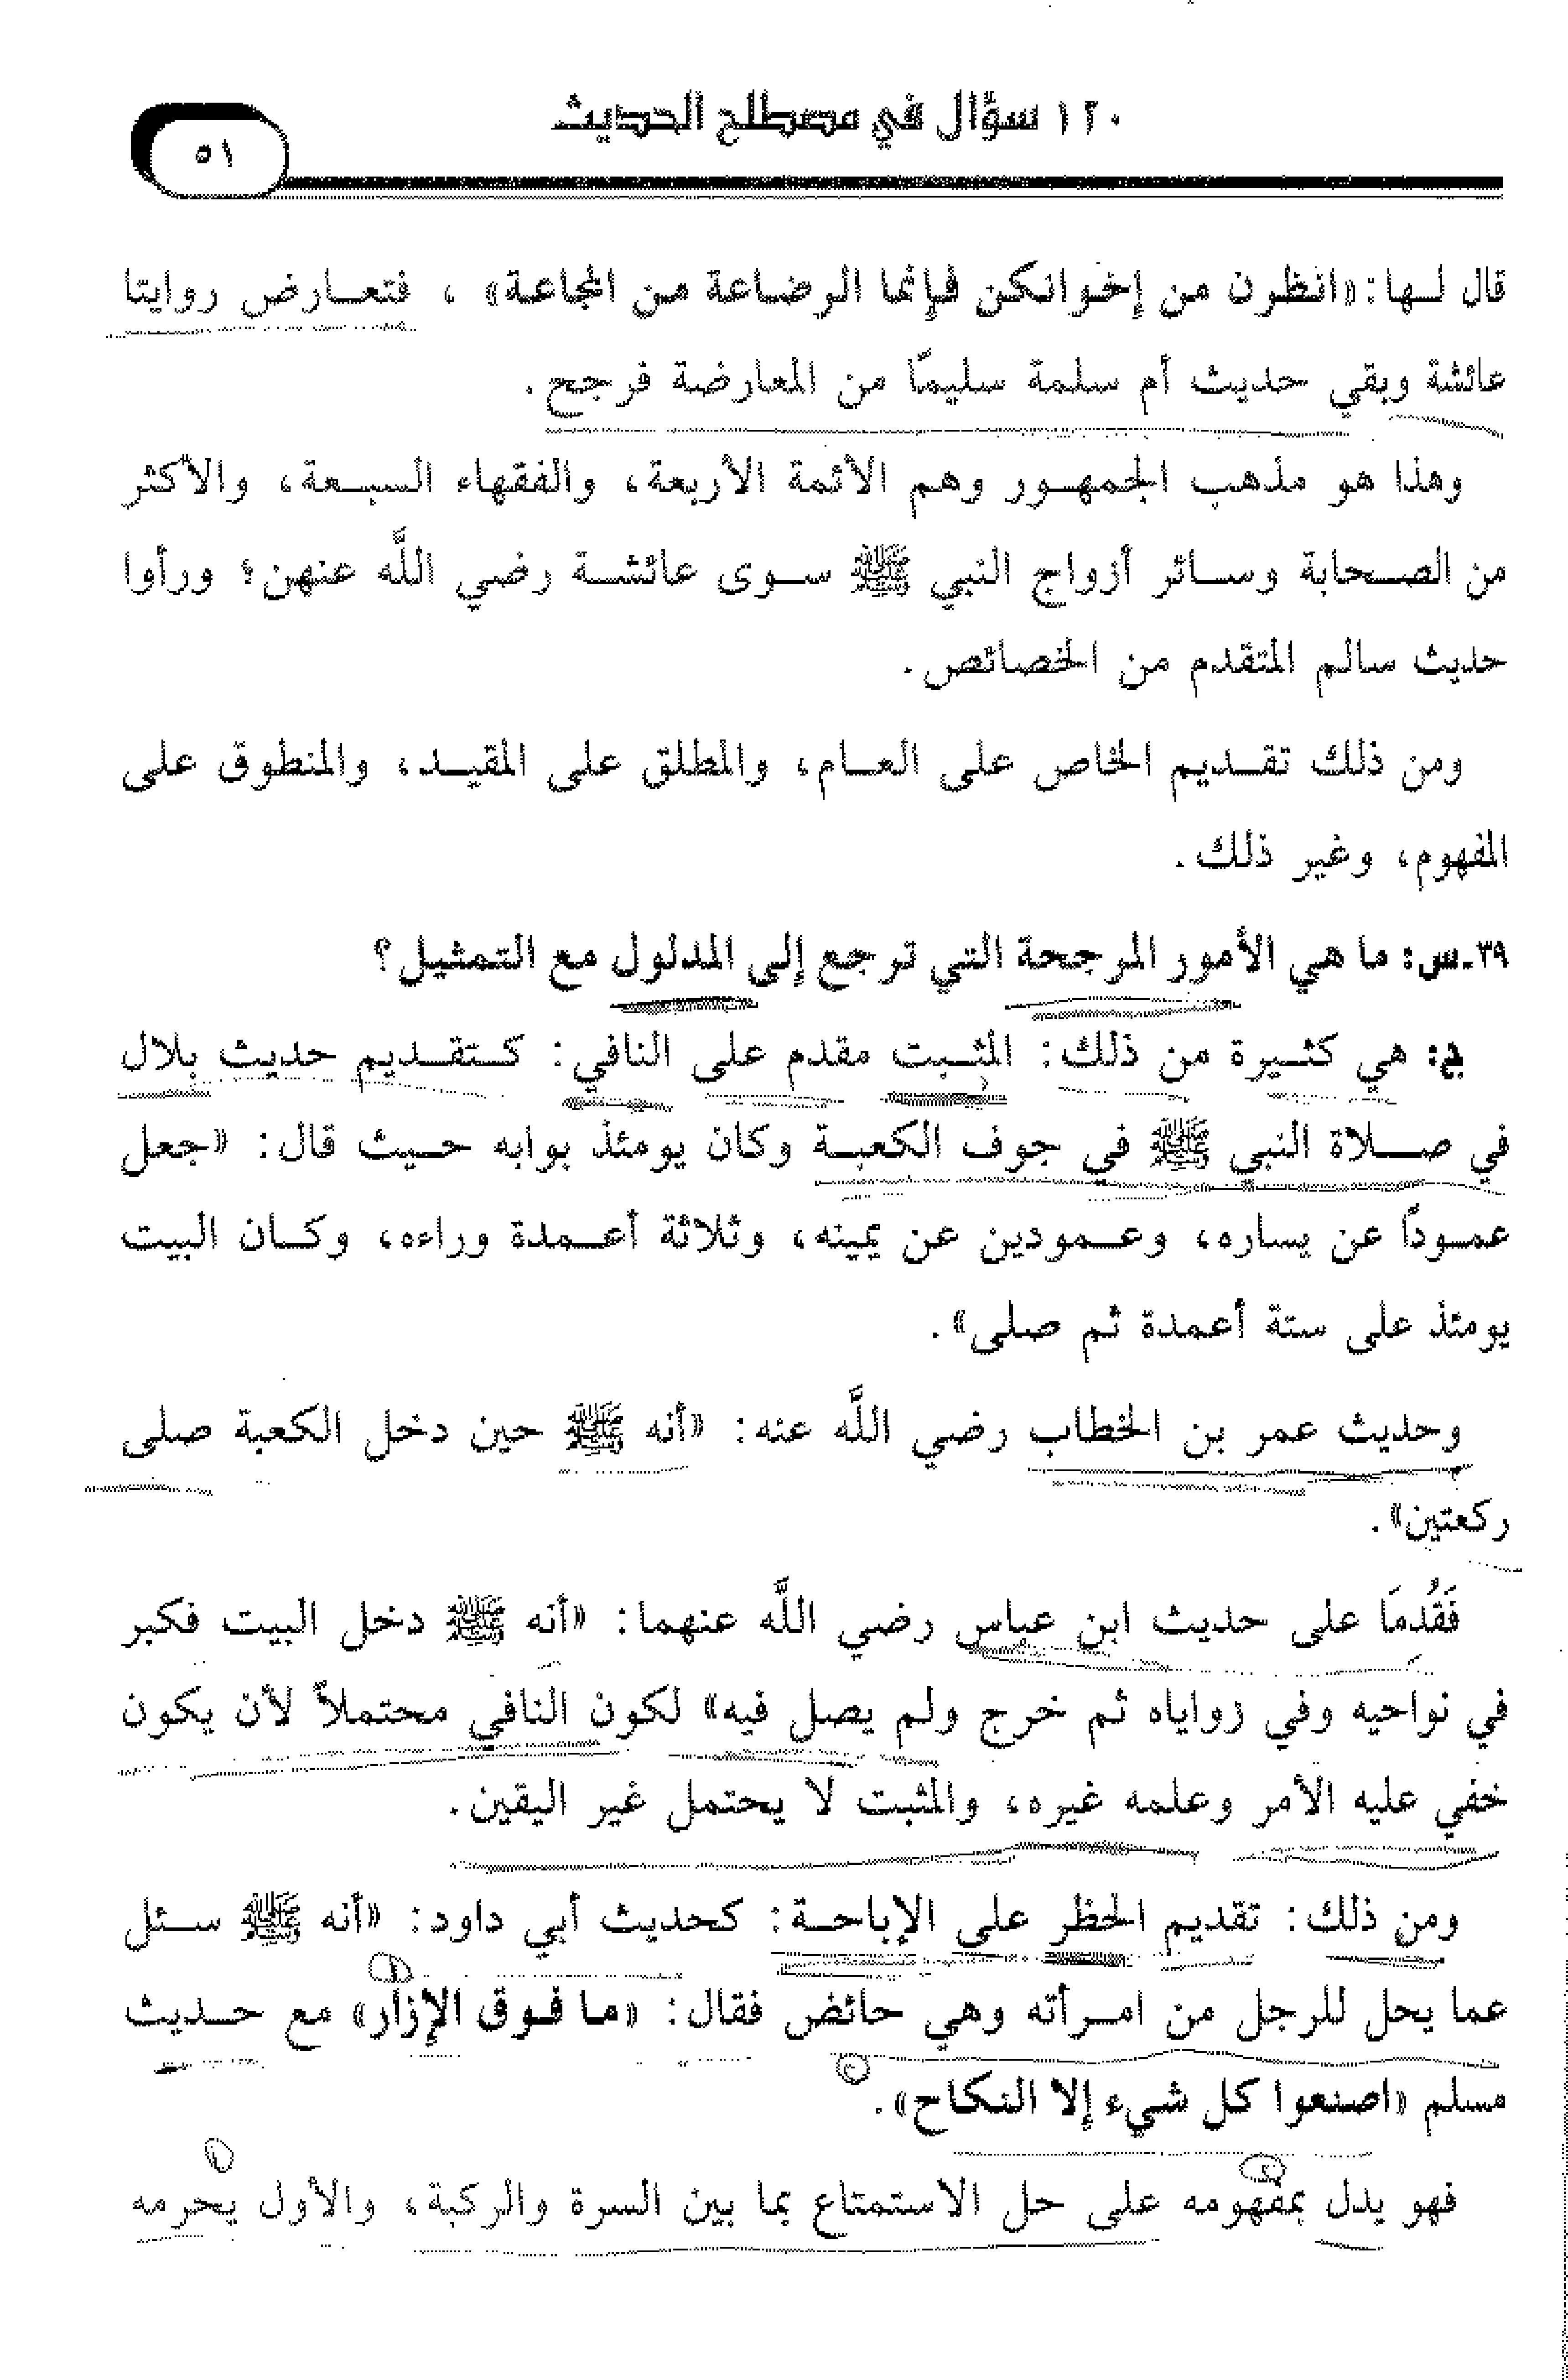 ١٢٠ سؤال في مصطلح الحديث
٥١
قال لها: «انظرن من إخوانكن فإنما الرضاعة من المجاعة» ، فتعارض روايتا
عائشة وبقي حديث أم سلمة سليمًا من المعارضة فرجح.
وهذا هو مذهب الجمهور وهم الأئمة الأربعة، والفقهاء السبعة، والأكثر
من الصحابة وسائر أزواج النبي ﷺ سوى عائشة رضي اللَّه عنهن؛ ورأوا
حديث سالم المتقدم من الخصائص.
ومن ذلك تقديم الخاص على العام، والمطلق على المقيد، والمنطوق على
المفهوم، وغير ذلك.
٣٩ـ س: ما هي الأمور المرجحة التي ترجع إلى المدلول مع التمثيل؟
ج: هي كثيرة من ذلك: المثبت مقدم على النافي: كتقديم حديث بلال
في صلاة النبي ﷺ في جوف الكعبة وكان يومئذ بوابه حيث قال: «جعل
عمودًا عن يساره، وعمودين عن يمينه، وثلاثة أعمدة وراءه، وكان البيت
يومئذ على ستة أعمدة ثم صلى».
وحديث عمر بن الخطاب رضي اللَّه عنه: «أنه ﷺ حين دخل الكعبة صلى
ركعتين».
فَقُدِمَا على حديث ابن عباس رضي اللَّه عنهما: «أنه ﷺ دخل البيت فكبر
في نواحيه وفي زواياه ثم خرج ولم يصل فيه» لكون النافي محتملاً لأن يكون
خفي عليه الأمر وعلمه غيره، والمثبت لا يحتمل غير اليقين.
ومن ذلك: تقديم الحظر على الإباحة: كحديث أبي داود: «أنه ﷺ سئل
عما يحل للرجل من امرأته وهي حائض فقال: «ما فوق الإزار» مع حديث
مسلم «اصنعوا كل شيء إلا النكاح».
فهو يدل بمفهومه على حل الاستمتاع بما بين السرة والركبة، والأول يحرمه